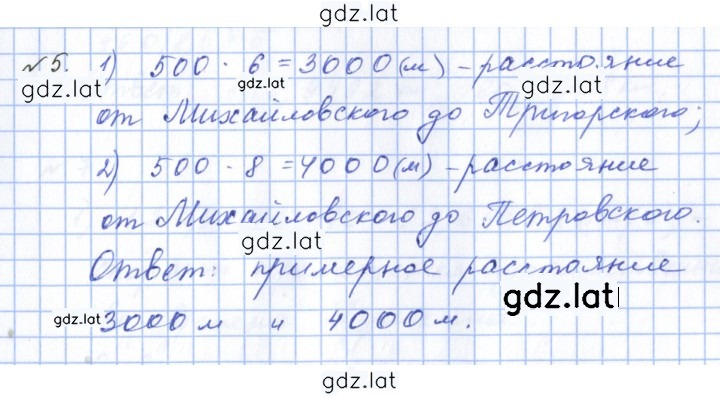 gdz.lat
№5. 1) 500 · 6 = 3000 (м) – расстояние
gdz.lat
gdz.lat
от Михайловского до Тригорского;
2) 500 · 8 = 4000 (м) – расстояние
от Михайловского до Петровского.
gdz.lat
Ответ: примерное расстояние
gdz.lat
gdz.lat
3000 м и 4000 м.
gdz.lat